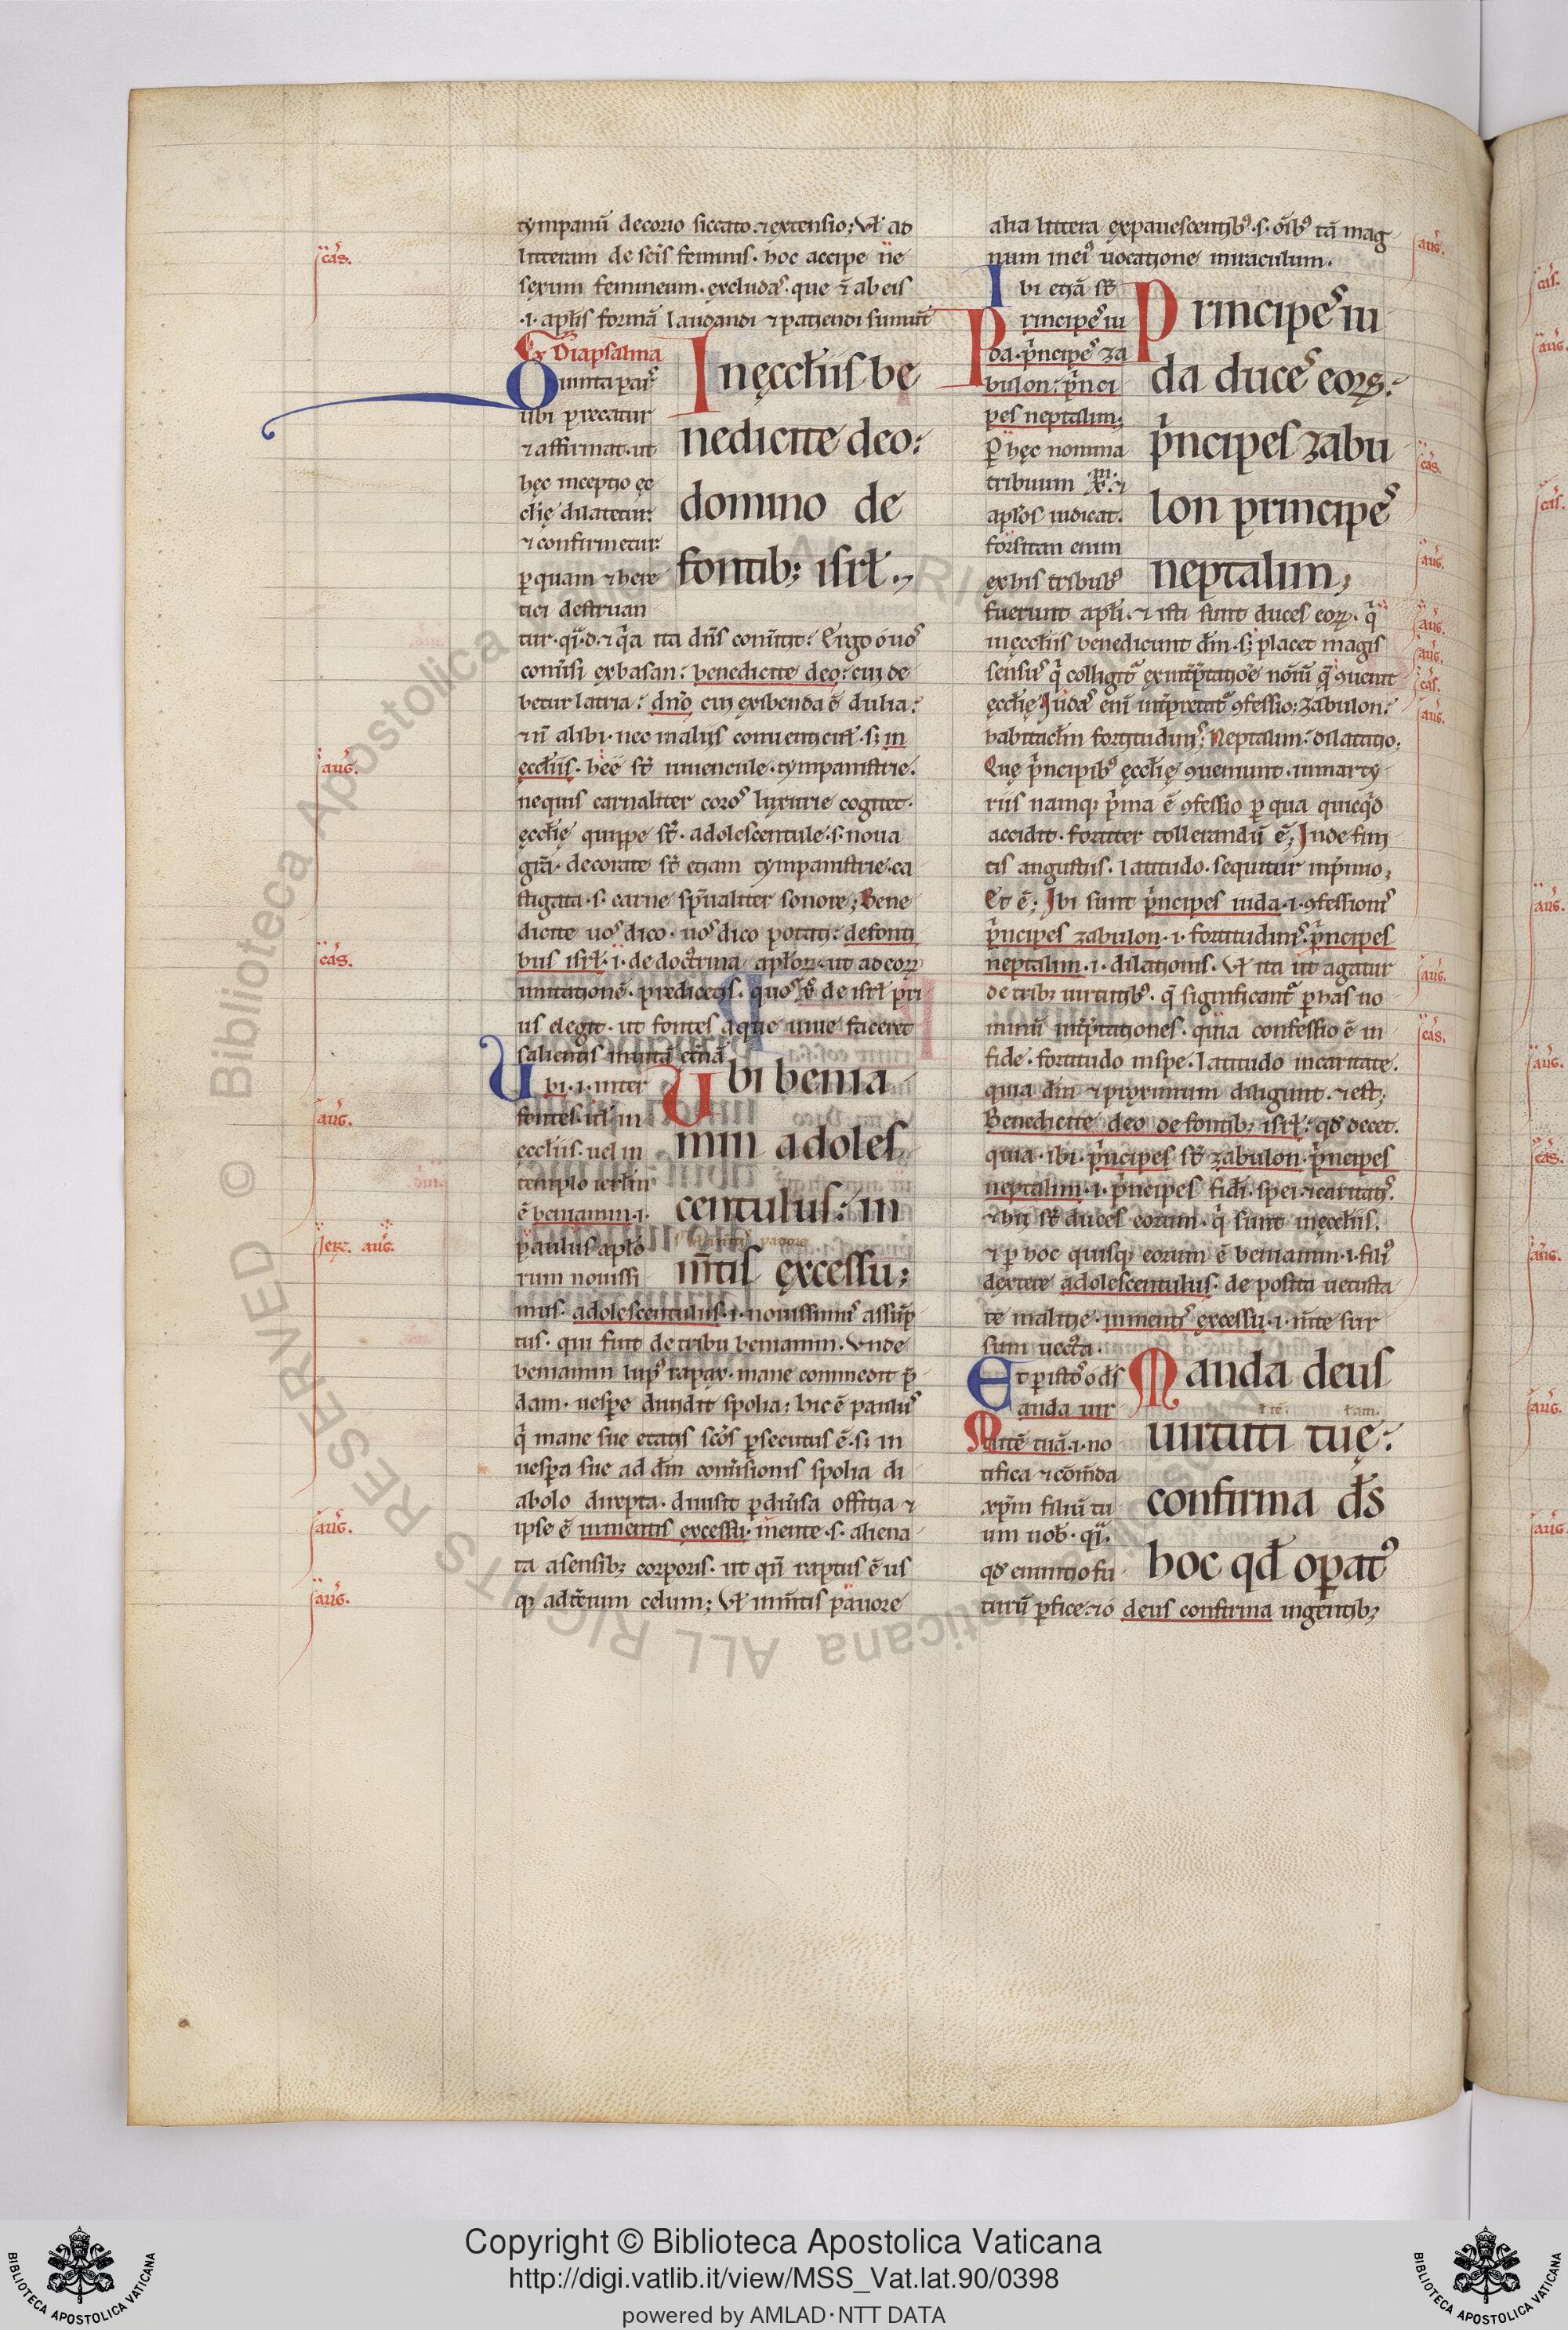 tympanū decorio siccato. ⁊ extensio; Vł ad
litteram de scīs feminis. hoc accipe ne
sexum femineum. excludas. que ē ab eis
.i. apłis formā laudandi ⁊ patiendi sumūt
Ex Diapsalma
Quinta pars
ubi precatur
⁊ affirmat. ut
hęc inceptio ęc
clię dilatetur.
⁊ confirmetur.
ꝑ quam ⁊ here
tici destruan
In ęccłiis be
nedicite deo:
domino de
fontib; isrł.
tur. qͥ. d. ⁊ qͣa ita dn̄s conūtit: Ergo o uos
conūsi ex basan: benedicite deo: cui de
betur latria: dn̄o cui exibenda ē dulia:
⁊ n̄ alibi. nec in aliis conuenticuł. s; in
ęccłiis. hęc st̄ iuuencule. tympanistrie.
nequis carnaliter coros luxurie cogitet.
ęccłię quippe st̄. adolescentule. s. noua
grā. decorate st̄ etiam tympanistrie. ca
stigata. s. carne spūaliter sonore; Bene
dicite uos dico. uos dico potati: de fonti
bus isrł. i. de doctrina apłoꝝ. ut ad eoꝝ
imitationē. predicetis. quos xp̄s de isrł pri
us elegit. ut fontes aque uiue faceret
salientis in uitā etnā
Ubi. i. inter
fontes. uł in
ęccłiis. uel in
templo ierłm
ē beniamin. i.
paulus apło
rum nouissi
Ubi benia
min adoles
centulus: in
m̄tis excessu;
mus. adolescentulus. i. nouissimus assūp
tus. qui fuit de tribu beniamin. Vnde
beniamin lupus rapax. mane commedit p̄
dam. uespe diuidit spolia; hic ē paulus
qͥ mane sue etatis scōs ꝑsecutus ē. s; in
uespa sue ad dm̄ conūsionis spolia di
abolo direpta. diuisit ꝑ diūsa offitia ⁊
ipse ē in mentis excessu. mente. s. aliena
ta a sensib; corporis. ut qn̄ raptus ē us
q; ad tertium celum; Vł in m̄tis pauore
alia littera expauescentib;. s. oīb; tā mag
num in eiꝰ uocatione miraculum.
Ibi etiā st̄
Principes iu
da. pͥncipes za
bulon: pͥnci
pes neptalim;
ꝑ hęc nomina
tribuum xp̄m. ⁊
apłos indicat.
forsitan enim
ex his tribubꝰ
Principes iu
da duces eoꝝ:
pͥncipes zabu
lon principes
neptalim;
fuerunt apłi. ⁊ isti sunt duces eoꝝ. qͥ
in ęccłiis benedicunt dm̄. s; placet magis
sensus qͥ colligitꝰ ex int̄p̄tatiōe noīū q̄ ꝯueniūt
ęccłię; Iudas enī int̄pretatꝰ ꝯfessio; zabulon:
habitacłm fortitudinis; Neptalim: dilatatio;
Quę pͥncipibꝰ ęccłię ꝯueniunt. in marty
riis namq; pͥma ē ꝯfessio ꝑ qua quicqͥd
accidit. fortiter tollerandū ē; Inde fini
tis angustiis. latitudo. sequitur in p̄mio;
Et ē; Ibi sunt pͥncipes iuda. i. ꝯfessionis
pͥncipes zabulon. i. fortitudinis. pͥncipes
neptalim. i. dilationis. Vł ita ut agatur
de trib; uirtutibꝰ. q̄ significantꝰ ꝑ has no
minū int̄p̄tationes. quia confessio ē in
fide. fortitudo in spe. latitudo in caritate.
quia dm̄ ⁊ proximum diligunt. ⁊ est;
Benedicite deo de fontib; isrł: qd̄ decet.
quia. ibi. pͥncipes st̄ zabulon. pͥncipes
neptalim. i. pͥncipes fidei. spei. ⁊ caritatis.
⁊ hii st̄ duces eorum. qͥ sunt in ęccłiis.
⁊ ꝑ hoc quisq; eorum ē beniamin. i. filiꝰ
dextere adolescentulus. de posita uetusta
te malitie. in mentis excessu. i. m̄te sur
sum uecta.
Et ꝑ istos o ds̄
Manda uir
tutē tuā. i. no
tifica ⁊ cōm̄da
xp̄m filiū tu
um nob̄. qͥ.
qd̄ enuntio fu
Manda deus
uirtuti tuę:
confirma ds̄
hoc qd̄ oꝑatꝰ
turū ꝑfice. ⁊ o deus confirma in gentib;
cas.
aug.
cas.
aug.
ier. aug.
aug.
aug.
aug.
cas.
aug.
aug.
aug.
cas.
aug.
aug.
cas.
Copyright © Biblioteca Apostolica Vaticana
http://digi.vatlib.it/view/MSS_Vat.lat.90/0398
powered by AMLAD·NTT DATA
BIBLIOTECA APOSTOLICA VATICANA
BIBLIOTECA APOSTOLICA VATICANA